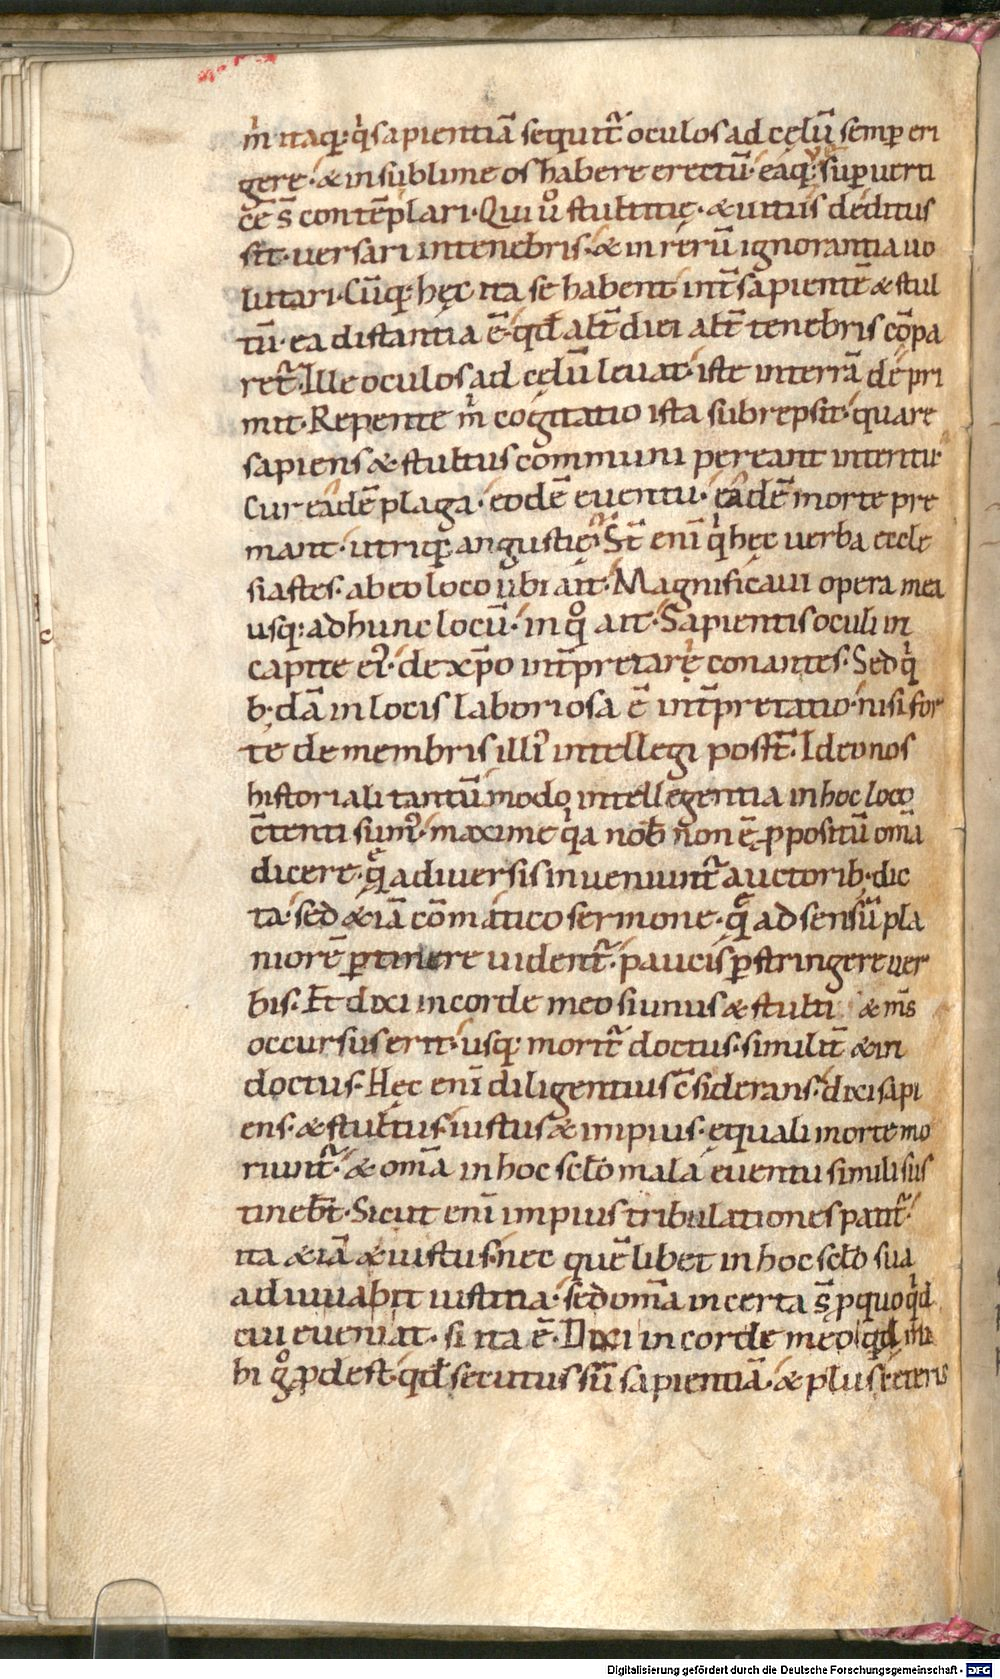 m̅ itaq; q̓ sapientiā sequit̃ oculos ad cęlū semp eri
gere · & in sublime os habere erectū · eaq; sup uerti
cē s̄ contēplari · Qui ů stultitię · & uitiis deditus
sit · uersari in tenebris · & in rerū ignorantia uo
lutari · Cūq; hęc ita se habent int̄ sapientē & stul
tū · ea distantia ē · qđ alt̄ diei alt̄ tenebris cōpa
ret̃ · Ille oculos ad cęlū leuat · iste in terrā depri
mit · Repente m̓ cogitatio ista subrepsit · quare
sapiens & stultus communi pereant interitu ·
Cur eadē plaga · eodē euentu · eadē morte pre
mant · utriq; angustię · St̄ eni q̓ hęc uerba eccle
siastes · ab eo loco ubi ait · Magnificaui opera mea
usq; ad hunc locū · in q̊ ait · Sapientis oculi in
capite ei᷒ · de xp̄o int̄pretare conantes · Sed q̓
b · dā in locis laboriosa ē int̄pretatio · nisi for
te de membris illi᷒ intellegi posst̄ · Ideo nos
historiali tantūmodo intellegentia in hoc loco
c̄tenti sum᷒ · maxime q̓a nob̄ non ē ꝓpositū om̄a
dicere · q̨ a diuersis inueniunt̃ auctorib · dic
ta · sed &iā cōmatico sermone · q̨ ad sensū pla
niorē ꝑtinere uident̃ · paucis ꝑstringere uer
bis · Et dixi in corde meo si unus & stulti & m̄s
occursus erit · usq; morit̃ doctus · similit̄ & in
doctus · Hęc eni diligentius c̄siderans · dixi sapi
ens · & stultus · iustus & impius · ęquali morte mo
riunt̃ · & om̄a in hoc scło mala euentu simili sus
tinebt̄ · Sicut eni impius tribulationes patit̃ ·
ita &iā & iustus · nec quēlibet in hoc scło sua
adiuuabit iustitia · sed om̄a incerta s̄ ꝑ quo q̓d
cui eueniat · si ita ē · Dixi in corde meo qđ
bi g̊ ꝓdest · qđ secutus sū sapientiā · & plus ceteris
Digitalisierung gefördert durch die Deutsche Forschungsgemeinschaft - DFG